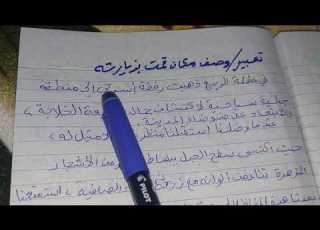 تعبير/وصف مكان قمت بزيارته
في عطلة الربيع ذهبت رفقة أسرتي إلى منطقة
جبلية سياحية لاكتشاف جمال الطبيعة الخلابة ،
والابتعاد عن ضوضاء المدينة
عندما وصلنا استقبلنا منظر لا مثيل له ،
حيث اكتسى سطح الجبل من الأشجار
المزهرة الصافية ، استمتعنا
PILOT